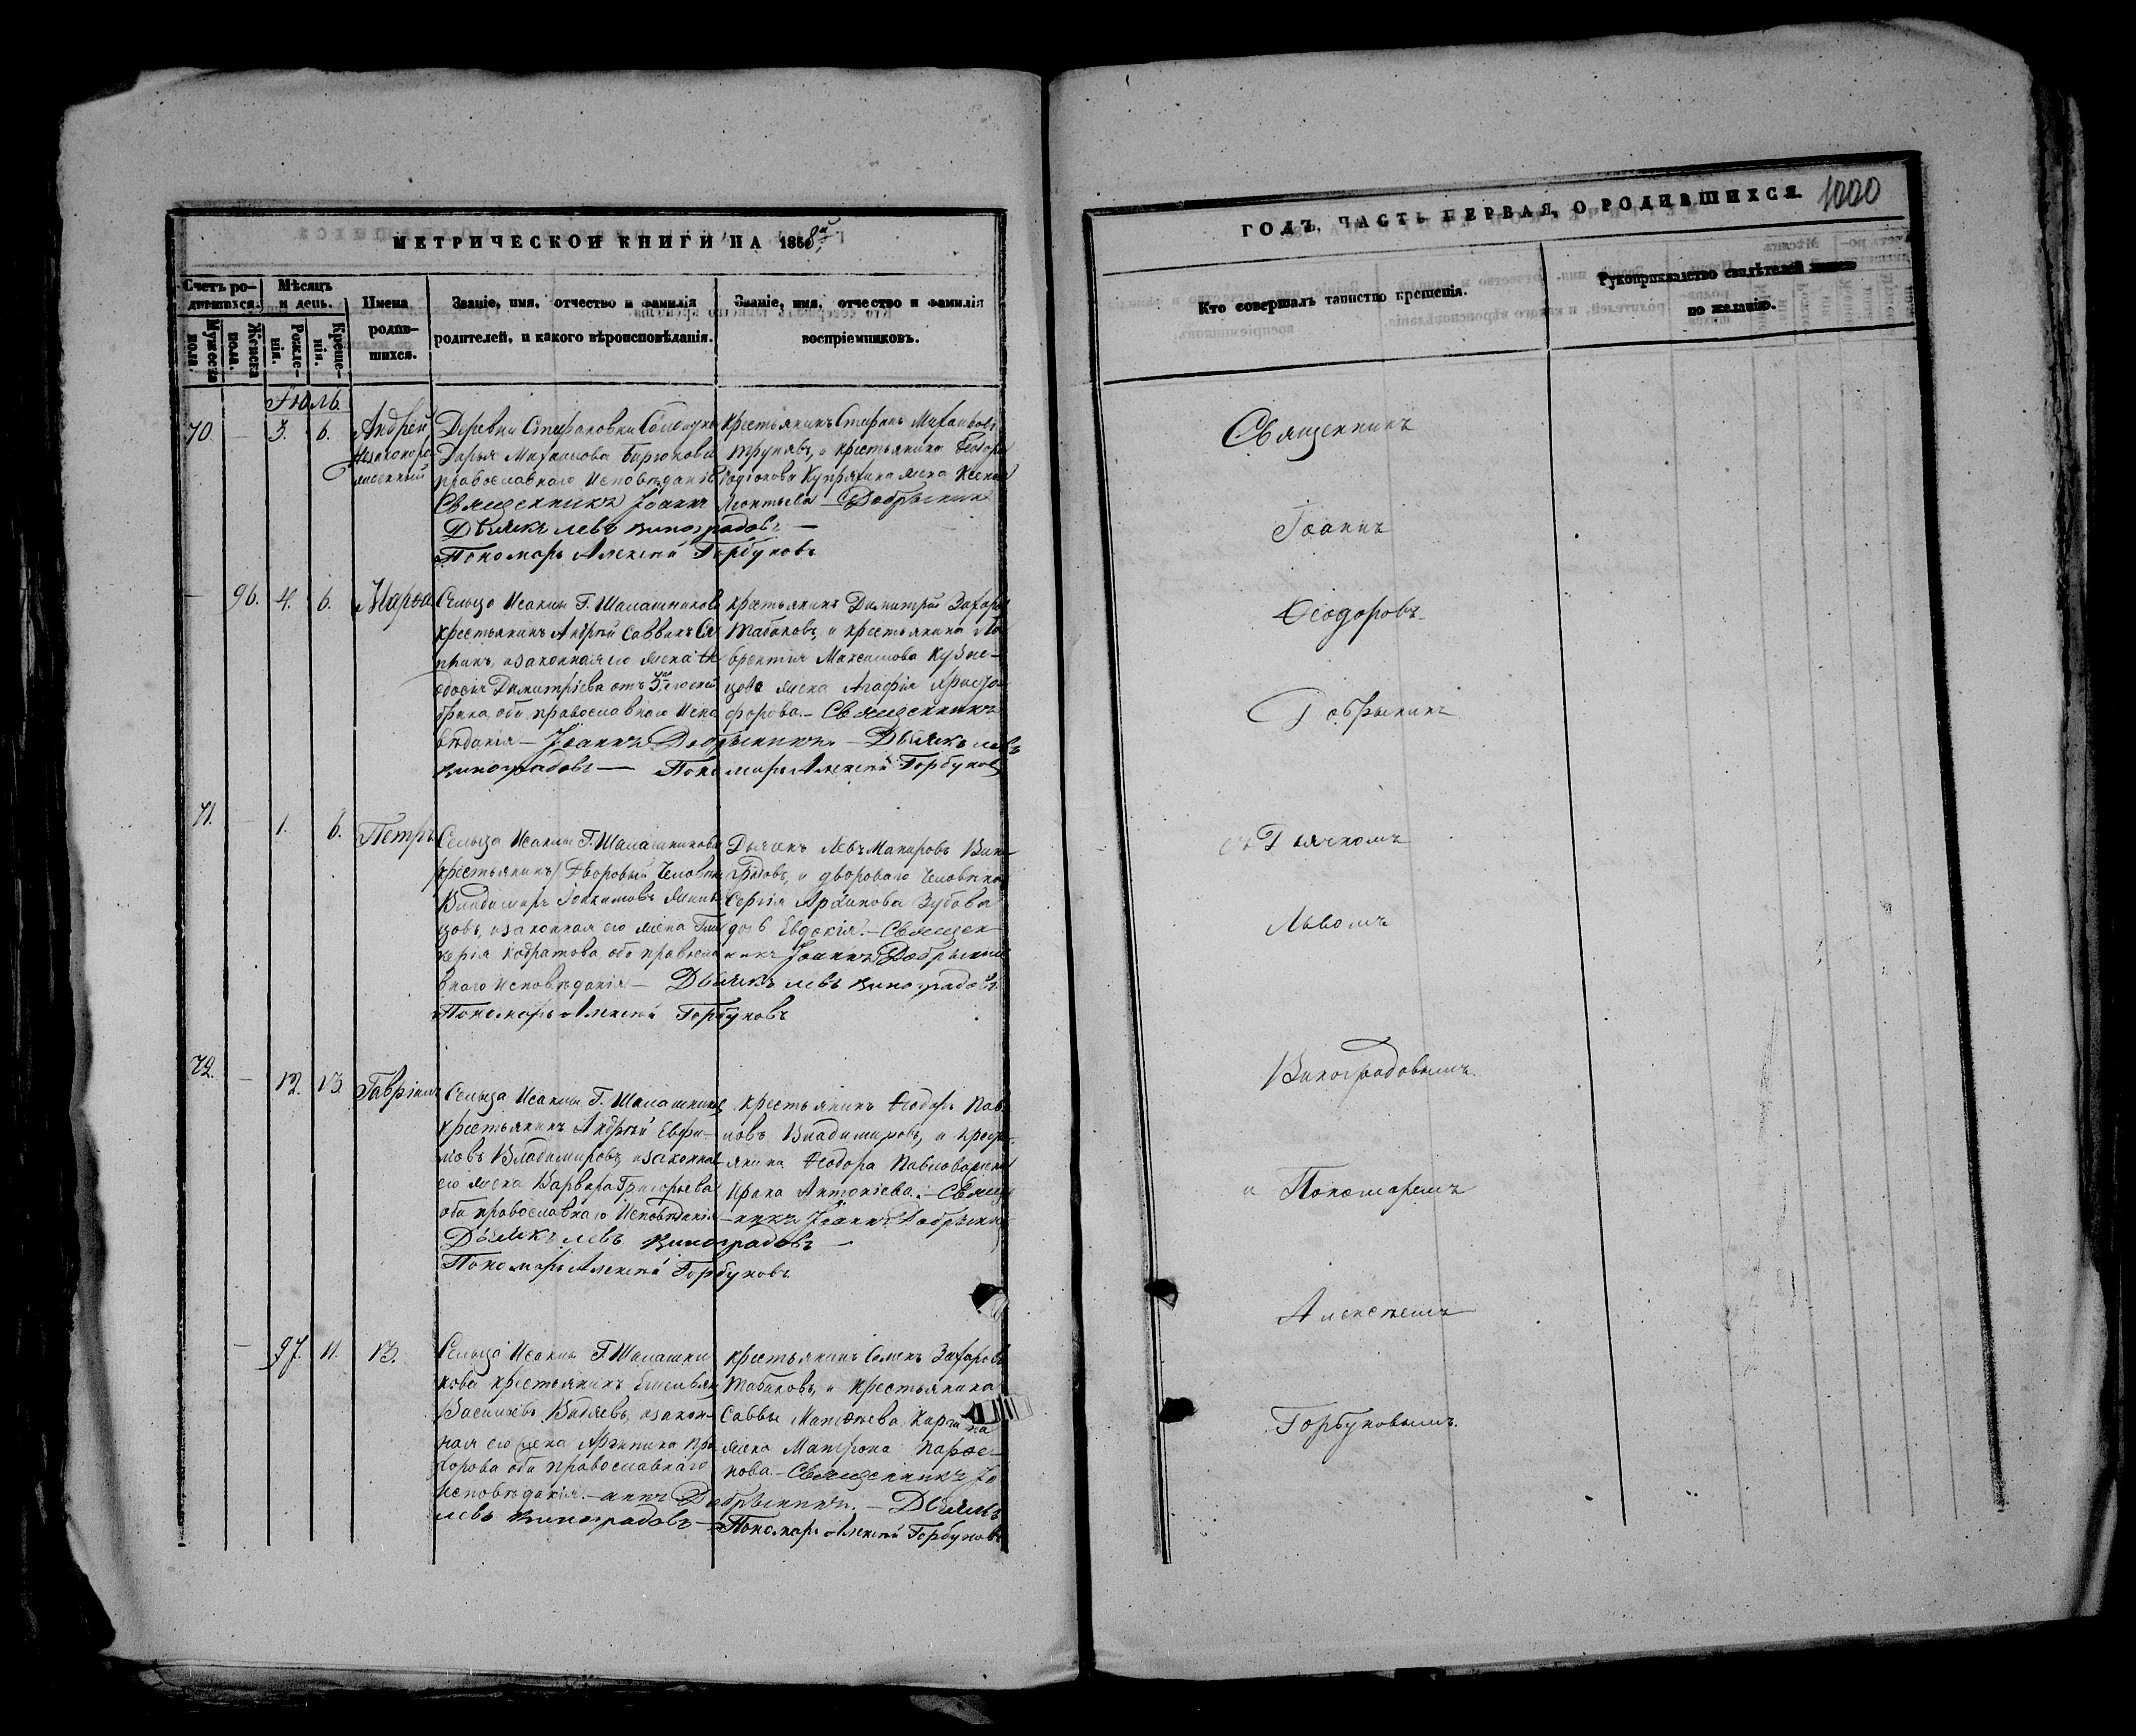 МЕТРИЧЕСКОЙ КНИГИ НА 1858й
Счетъ ро-
дившихся.
Мѣсяцъ
и день.
Имена
родив-
шихся.
Званіе, имя, отчество и фамилія
родителей, и какого вѣроисповѣданія.
Званіе, имя, отчество и фамилія
воспріемниковъ.
Мужеска
пола.
Женска
пола.
Рожде-
нія.
Креще-
нія.
Іюль.
70. — 3. 6. Андрей
незаконоро-
жденный
Деревни Стефановки
Дарья Михаилова
православнаго Исповѣданія
Священникъ Іоаннъ
Дьячекъ Левъ Виноградовъ —
Пономарь Алексѣй Горбуновъ
крестьянинъ Стефанъ Михаиловъ
и крестьянина Ѳеодора
Родіонова Купряхина жена Ксенія
Леонтьева — Добрынинъ
— 96. 4. 6. Марѳа
Сельца Исаклы Г. Шалашникова
крестьянинъ Андрей Саввинъ
и законная его жена Ѳе
одосія Димитріева отъ
брака, оба православнаго Испо
вѣданія — Іоаннъ Добрынинъ. — Дьячекъ Левъ
Виноградовъ — Пономарь Алексѣй Горбуновъ
крестьянинъ Димитрій Захаровъ
Табаковъ, и крестьянина Ла
врентія Максимова Кузне-
цова жена Агафія Христо-
форова. — Священникъ
71. — 1. 6. Петръ
Сельца Исаклы Г. Шалашникова
(крестьянинъ) Дворовый Человѣкъ
Владимиръ Іоакимовъ
цовъ, и законная его жена Гли
керія Кодратова, оба правосла
внаго Исповѣданія — Дьячекъ Левъ Виноградовъ
Пономарь Алексѣй Горбуновъ
Дьячекъ Левъ Макаровъ Вино-
градовъ, и двороваго Человѣка
Сергія Архипова Зубова
дочь Евдокія. — Священ
никъ Іоаннъ Добрынинъ
72. — 12. 13. Гавріилъ
Сельца Исаклы Г. Шалашникова
крестьянинъ Андрей Евфи-
мовъ Владимировъ, и законная
его жена Варвара Григорьева
оба православнаго Исповѣданія
Дьячекъ Левъ Виноградовъ —
Пономарь Алексѣй Горбуновъ
крестьянинъ Ѳеодоръ Пав
ловъ Владимировъ, и крест-
янина Ѳеодора Павлова жена
Ирина Антоніева. — Священ
никъ Іоаннъ Добрынинъ
— 97. 11. 13.
Сельца Исаклы Г. Шалашни
кова крестьянинъ Емельянъ
Васильевъ и закон-
ная его жена Агрипина Про
хорова оба православнаго
исповѣданія. — аннъ Добрынинъ. — Дьячекъ
Левъ Виноградовъ — Пономарь Алексѣй Горбуновъ
крестьянинъ Семенъ Захаровъ
Табаковъ, и крестьянина
Саввы Матѳеева
жена Матрона Парѳе-
нова. — Священникъ Іо
ГОДЪ, ЧАСТЬ ПЕРВАЯ, О РОДИВШИХСЯ. 1000
Кто совершалъ таинство крещенія.
Рукоприкладство свидѣтелей записи
по желанію.
Священникъ
Іоаннъ
Ѳеодоровъ
Добрынинъ
съ Дьячкомъ
Львомъ
Виноградовымъ
и Пономаремъ
Алексѣемъ
Горбуновымъ.